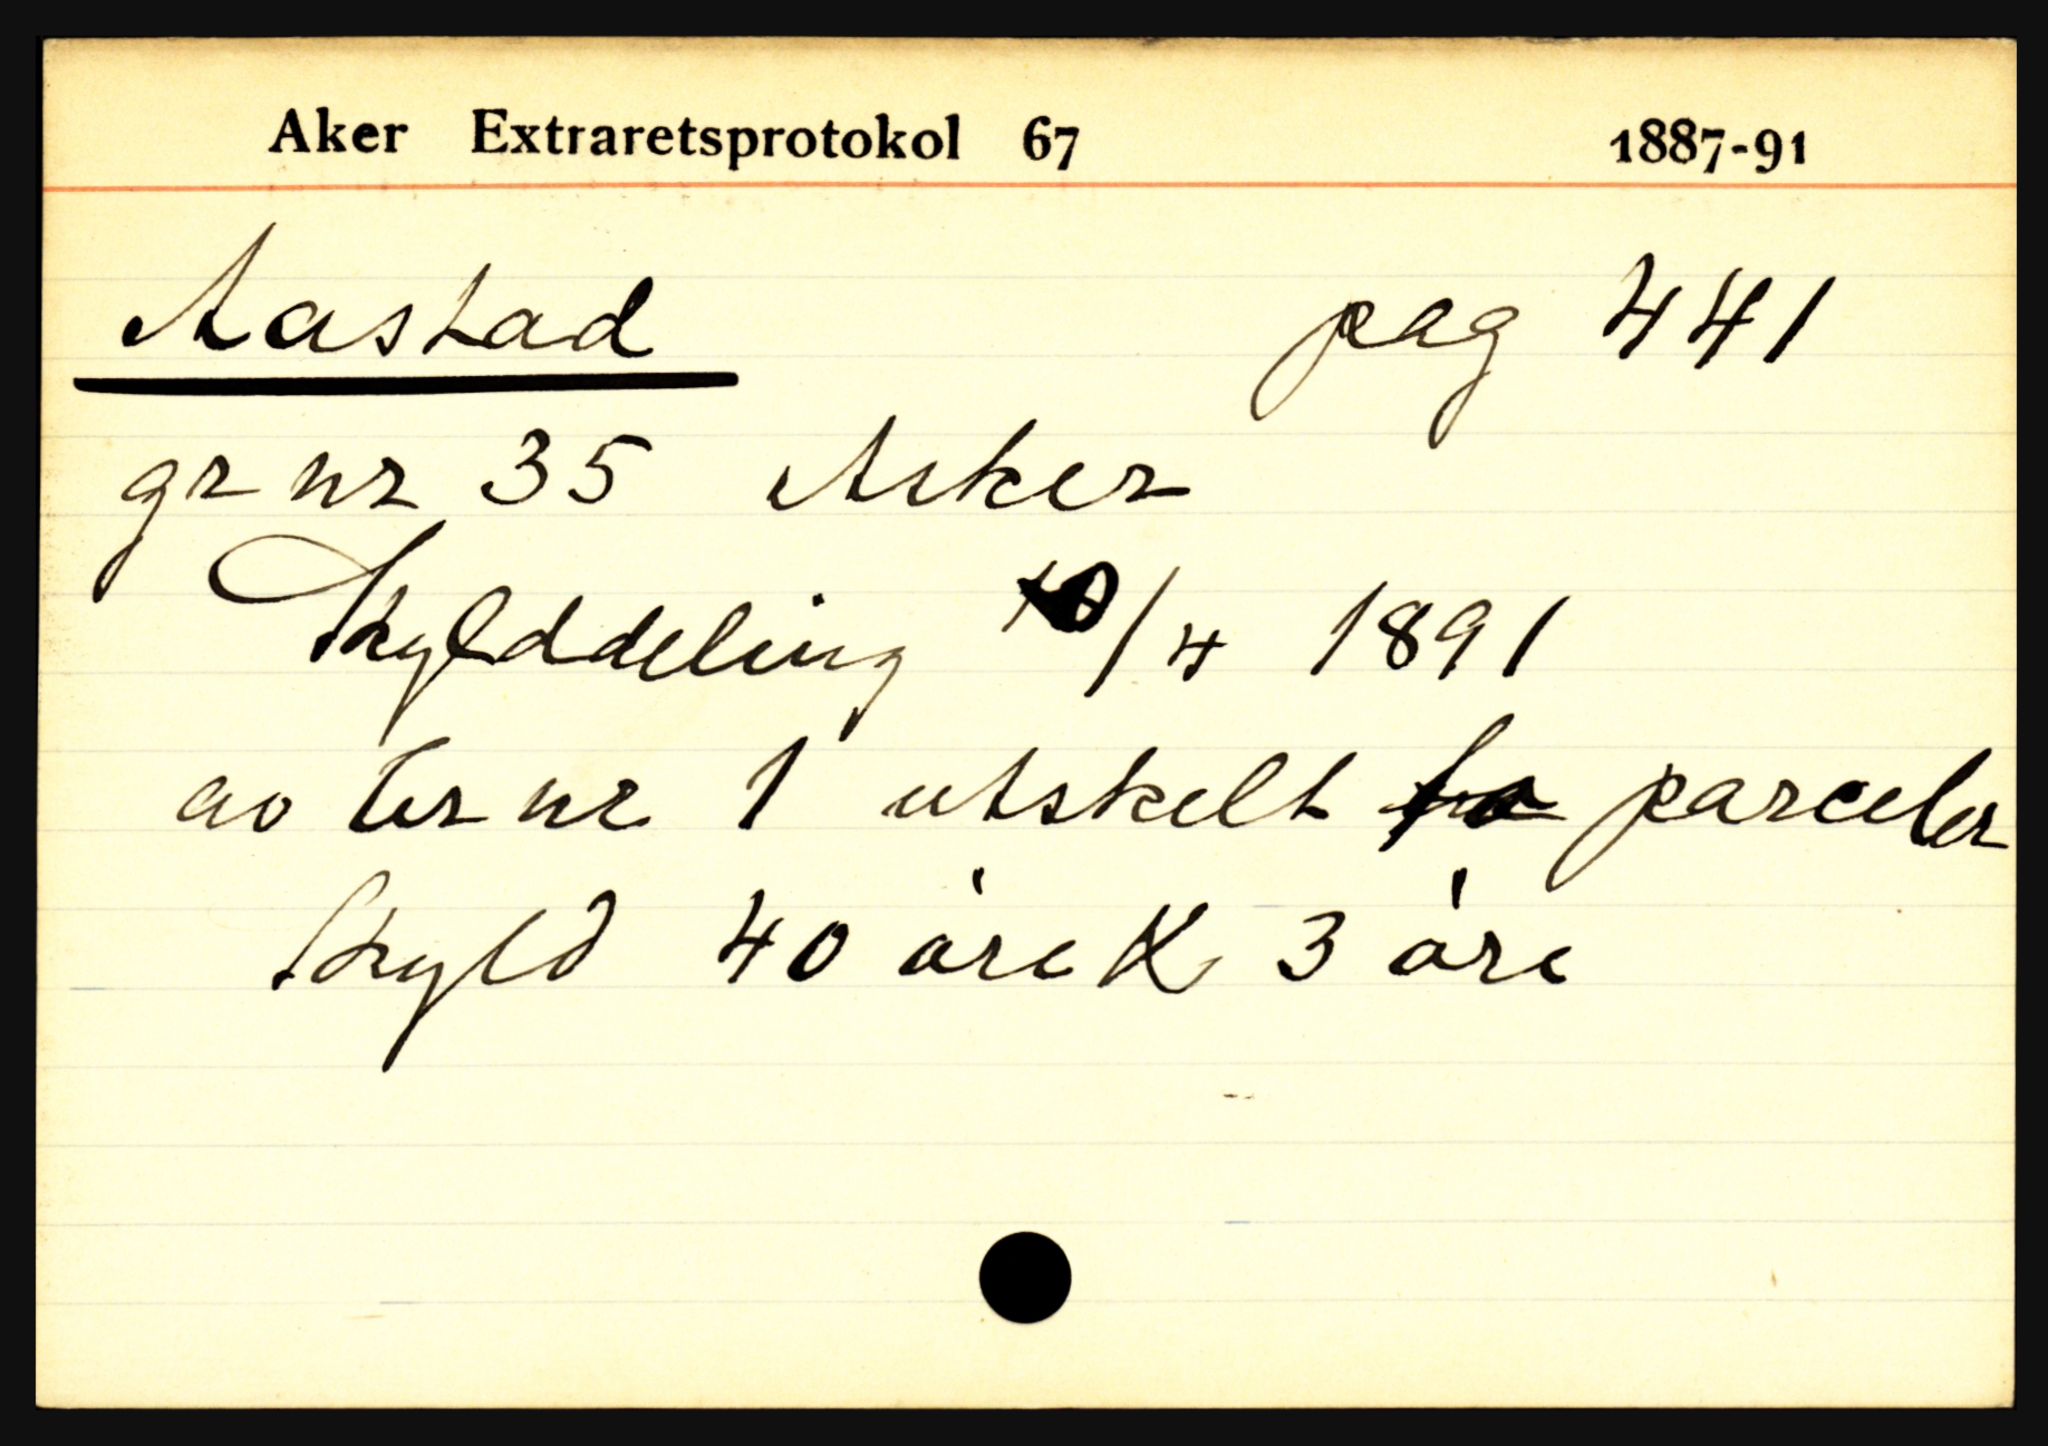 Aker Extraretsprotokol 67 1887-91
Aastad pag 441
gr nr 35 Asker
Skylddeling /4 1891
av br nr 1 utskelt parceler
skyld 40 øre & 3 øre